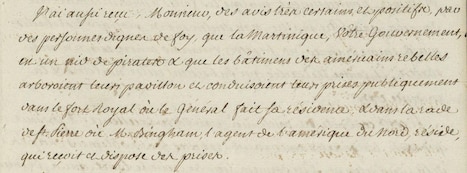 J'ai aussi reçu, Monsieur, des avis très certains et positifs, par
des personnes dignes de foy, que la Martinique, Votre Gouvernement,
un nid de pirates & que les bâtimens des américains rebelles
arboroient leurs pavillon et conduisoient leurs prises publiquement
dans le fort Royal où le Général fait sa résidence, & dans la rade
de St. Pierre où M. Bingham, l'agent de l'amérique du Nord, réside,
qui reçoit et dispose des prises.